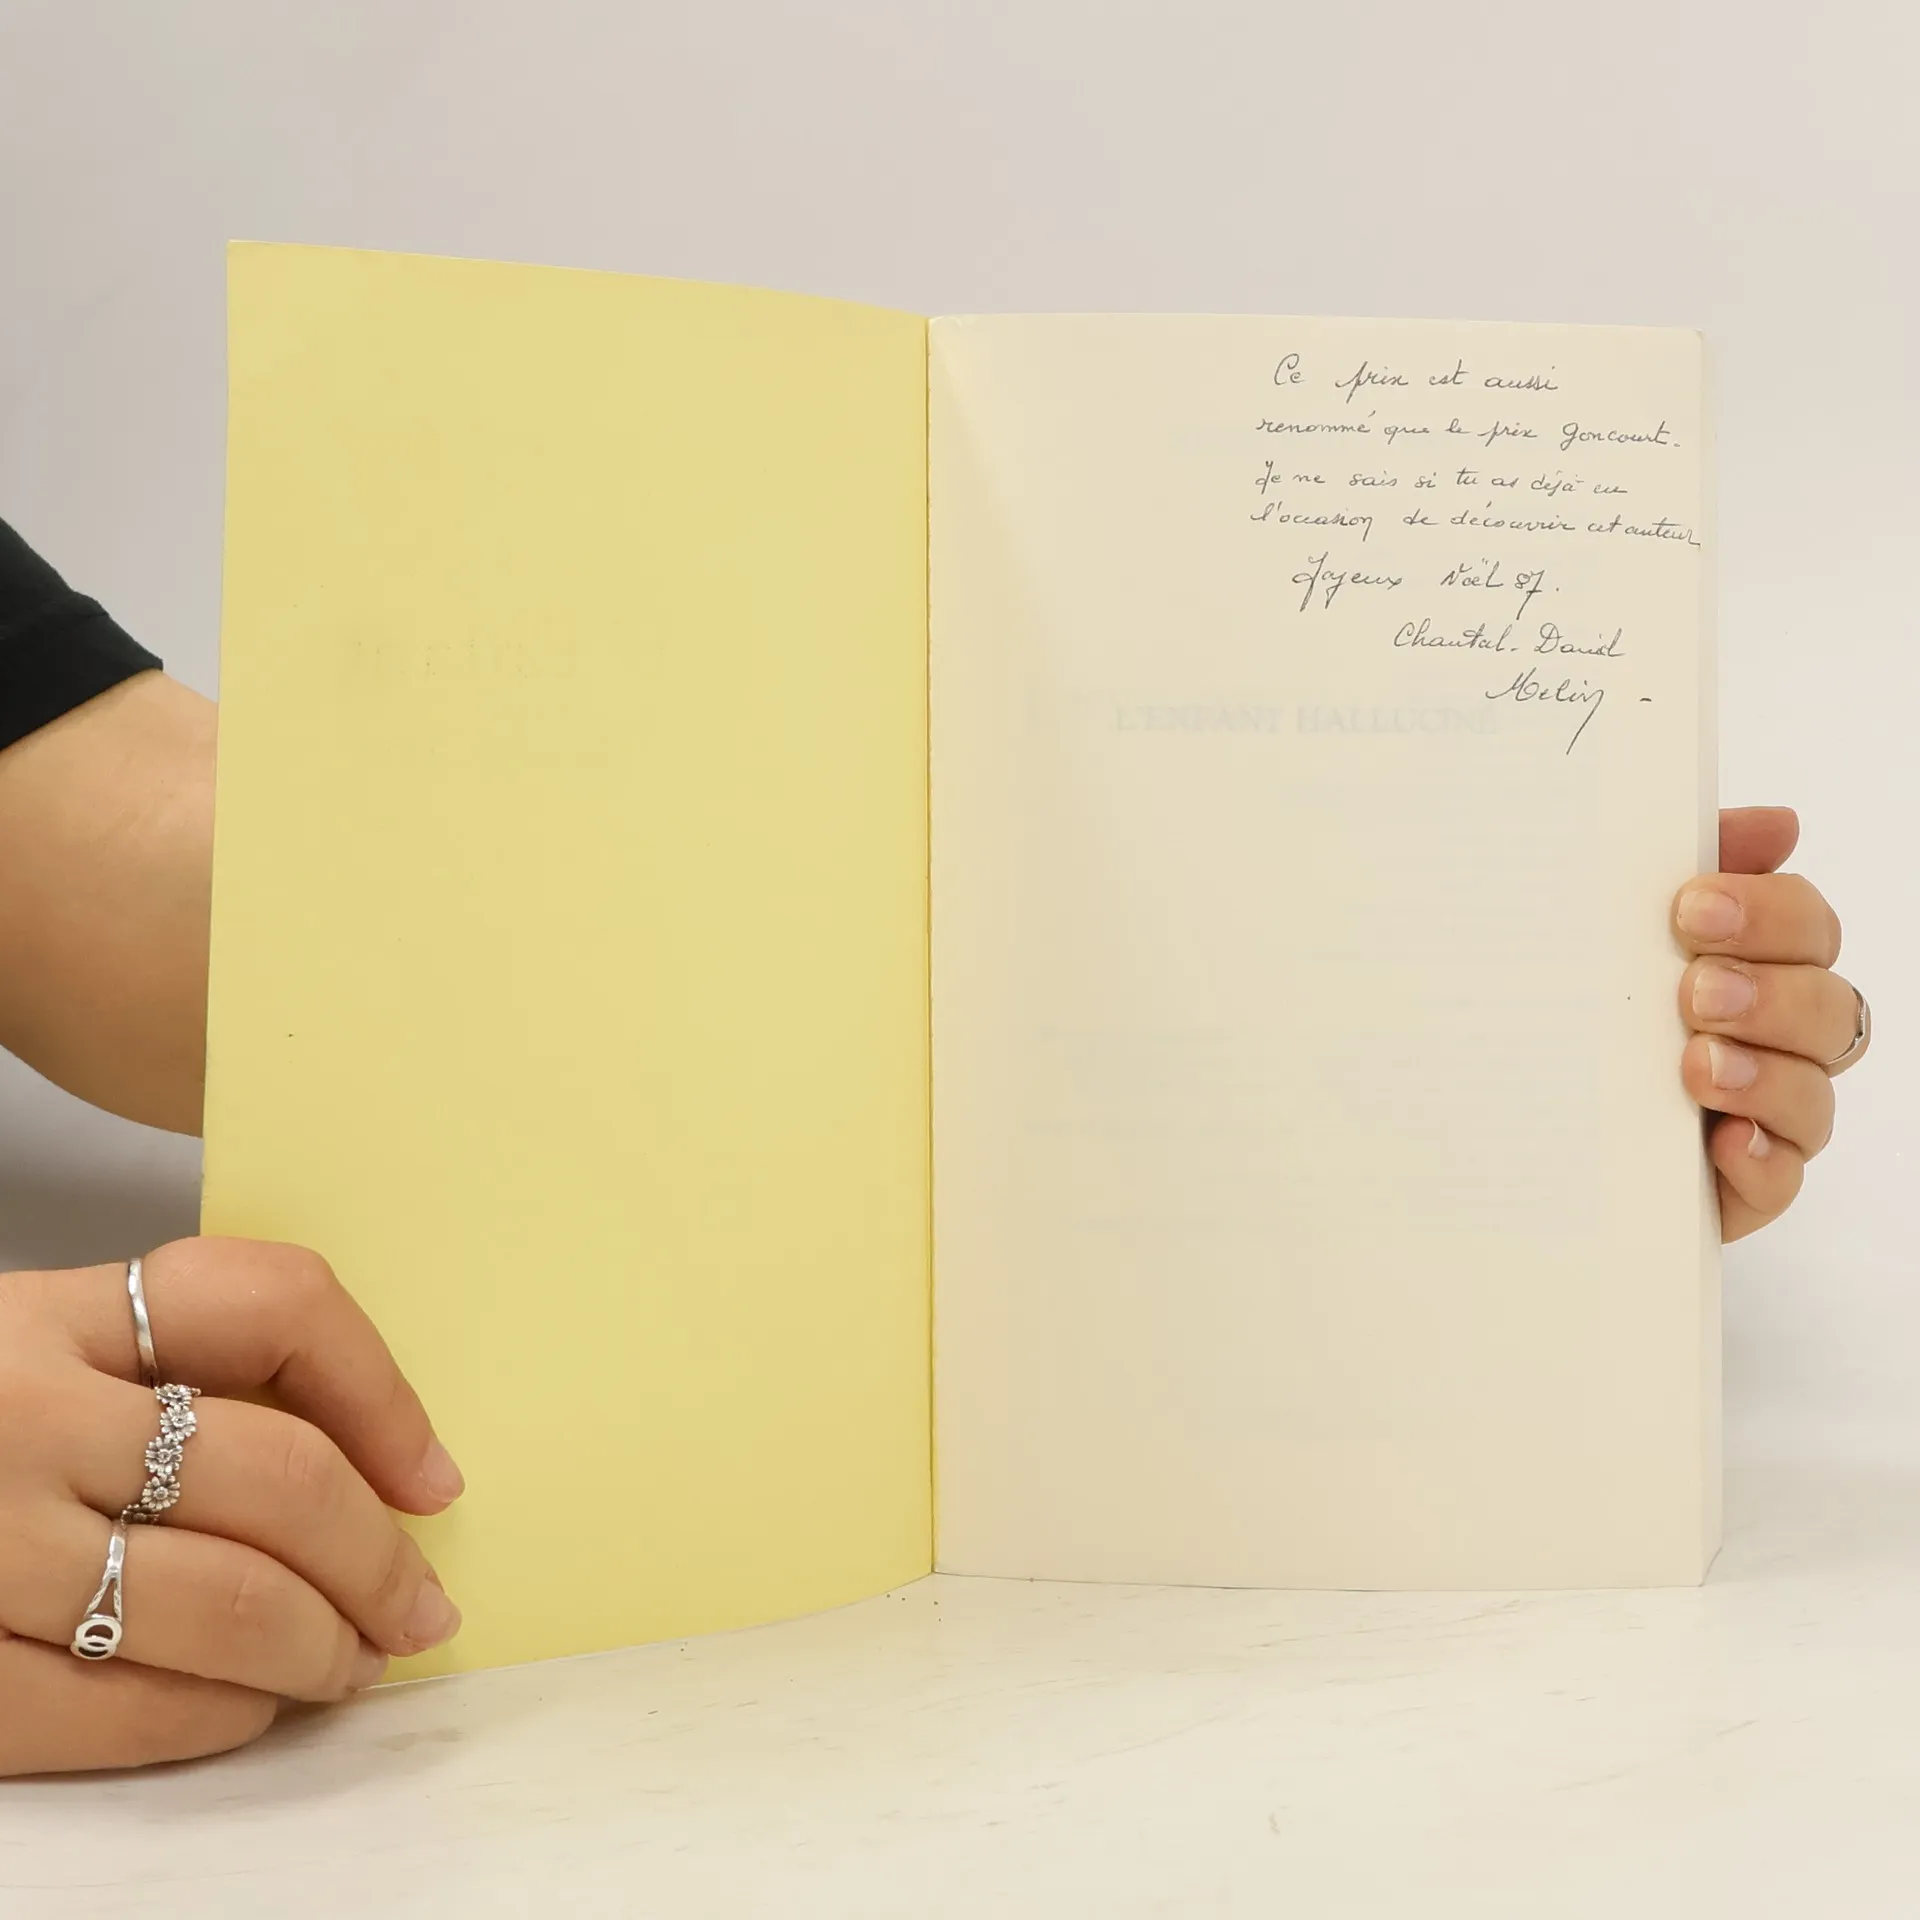 Ce prix est aussi
renommé que le prix Goncourt.
Je ne sais si tu as déjà eu
l'occasion de découvrir cet auteur
Joyeux Noël 87.
Chantal. David
Melin -
L'ENFANT HALLUCINÉ